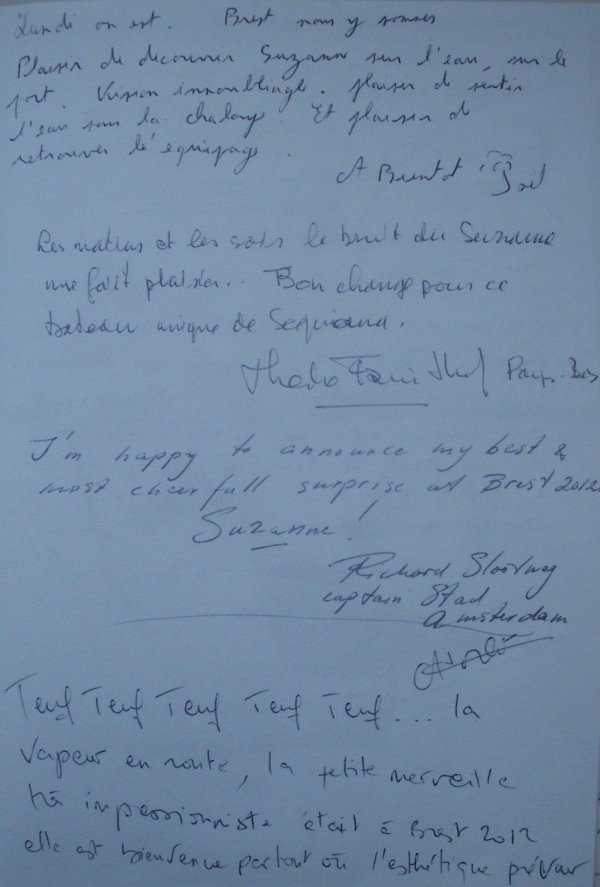 Lundi on est. Brest nous y sommes
Plaisir de découvrir Suzanne sur l'eau, sur le
port. Vision innoubliagle. plaisir de sentir
l'eau sous la chaloupe. Et plaisir de
retrouver l'équipage.
A Bientot Joël
Les matins et les soirs le bruit du Suzanne
me fait plaisir.. Bon change pour ce
bateau unique de Sequana.
Pays-Bas
I'm happy to announce my best &
most cheerfull surprise at Brest 2012
Suzanne!
Richard Slootweg
captain Stad
Amsterdam
Teuf Teuf Teuf Teuf Teuf... la
vapeur en route, la petite merveille
impressionniste était à Brest 2012
elle est bienvenue partout où l'esthétique prévaut